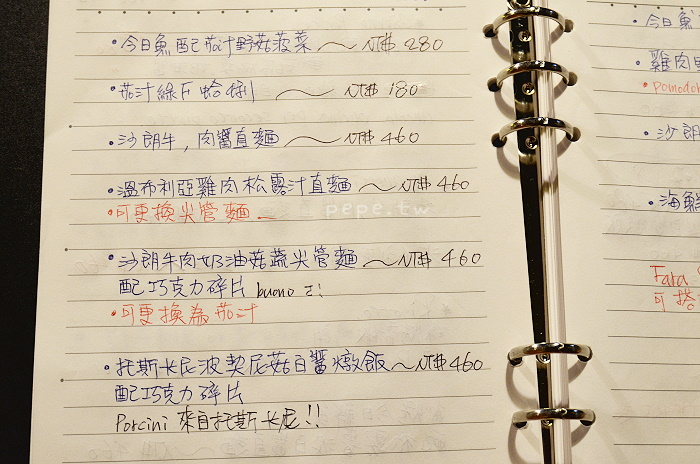 ・今日魚配茄汁野菇菠菜 ～ NT$ 280
・茄汁綠F蛤蜊 ～ NT$ 180
・沙朗牛，肉醬直麵 ～ NT$ 460
・溫布利亞雞肉松露汁直麵 ～ NT$ 460
・可更換尖管麵
pepe.tw
・沙朗牛肉奶油菇蔬尖管麵 ～ NT$ 460
配巧克力碎片 buono
・可更換為茄汁
・托斯卡尼波契尼菇白醬燉飯 ～ NT$ 460
配巧克力碎片
Porcini 來自托斯卡尼!!
・今日魚
・雞肉
・沙朗
・海鮮
可搭